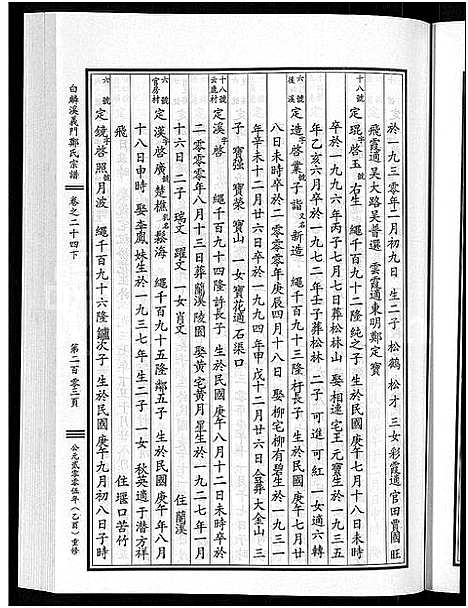 於一九三〇年二月初九日 生二子 松鶴 松才 三女彩霞適官田賈國旺
飛霞適吴大路吴普選 雲霞適東明鄭定寶
十八號 定琨字啓玉號右生 繩千百九十二隆純之子 生於民國庚午七月十八日未時
卒於一九九六年丙子七月七日葬松林山 娶相連宅王元寶生於一九三五
年乙亥六月卒於一九七二年壬子葬松林 二子 可進 可紅 一女適六轉
六號 後溪 定造字啓業子詣又名新造 繩千百九十三隆杆長子 生於民國庚午七月廿
八日未時卒於二零零零年庚辰四月十八日 娶柳宅柳有碧生於一九三一
年辛未十二月廿六日卒於一九九四年甲戌十二月廿六日合葬大金山 三
子 寶强 寶榮 寶山 一女寶花適石渠口
十八號 云鹿村 定溪啓 繩千百九十四隆許長子 生於民國庚午八月十二日未時卒於
二零零零年八月十三日葬蘭溪陵園 娶黄宅黄月星生於一九二七年一月
十六日 二子 瑞文 躍文 一女肖文 住蘭溪
六號 官房村 定漢字啓廣號楚樵乳名鬆海 繩千百九十五隆鄰五子 生於民國庚午八月
十八日申時 娶李鳳妹生於一九三七年 生二子 一女 秋英適于潜方祥
飛 住堰口苦竹
六號 定鏡字啓照號月波 繩千百九十六隆鑪次子 生於民國庚午九月初八日子時
白麟溪義門鄭氏宗譜
卷之二十四下
第二百零三頁
公元贰零零伍年(乙酉)重修